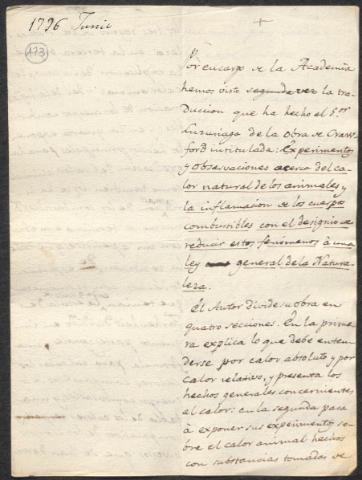 1796 Junio
173
+
Por encargo de la Academia
hemos visto segunda vez la tra-
duccion que ha hecho el S.or
Luzuriaga de la obra de Craw-
ford intitulada: Experimentos
y observaciones acerca del ca-
lor natural de los animales y
la inflamacion de los cuerpos
combustibles con el designio de
reducir estos fenomenos à una
ley general de la Natura-
leza.
El Autor divide su obra en
quatro secciones. En la prime-
ra explica lo que debe enten-
derse por calor absoluto y por
calor relativo, y presenta los
hechos generales concernientes
el calor: en la segunda pasa
à exponer sus experimentos so-
bre el calor animal hechos
con substancias tomadas de